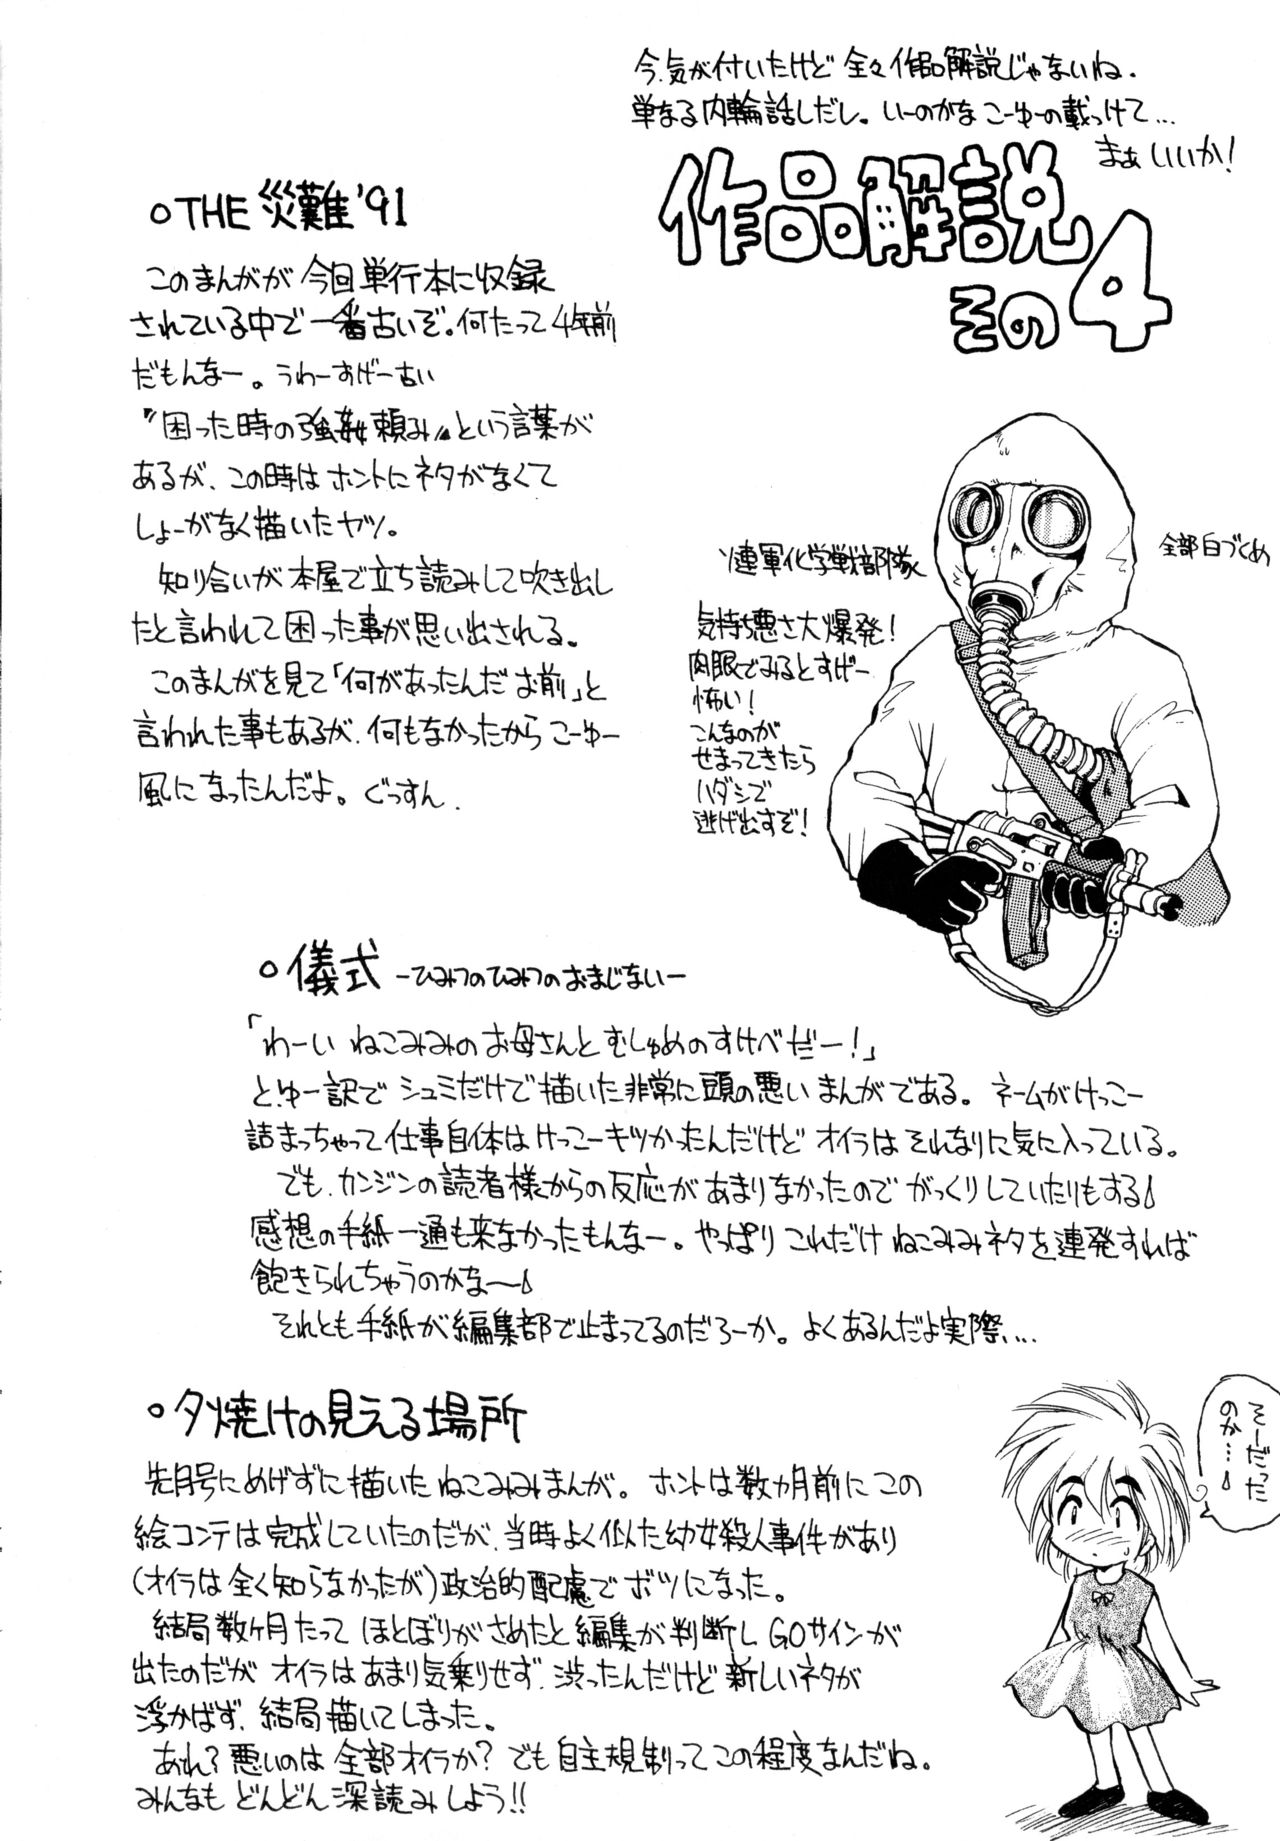 今、気が付いたけど全々作品解説じゃないね.
単なる内輪話しだし。いーのかなこーゆーの載っけて…
まぁいいか!
作品解説
その4
○THE災難'91
このまんがが今回単行本に収録
されている中で一番古いぞ。何たって4年前
だもんなー。うわーすげー古い
〝困った時の強姦頼み〟という言葉が
あるが、この時はホントにネタがなくて
しょーがなく描いたヤツ。
知り合いが本屋で立ち読みして吹き出し
たと言われて困った事が思い出される。
このまんがを見て「何があったんだお前」と
言われた事もあるが、何もなかったからこーゆー
風になったんだよ。ぐっすん.
ソ連軍化学戦部隊
全部白づくめ
気持ち悪さ大爆発!
肉眼でみるとすげー
怖い!
こんなのが
せまってきたら
ハダシで
逃げ出すぞ!
○儀式ーひみつのひみつのおまじないー
「わーいねこみみのお母さんとむしゅめのすけべだー!」
とゆー訳でシュミだけで描いた非常に頭の悪いまんがである。ネームがけっこー
詰まっちゃって仕事自体はけっこーキツかったんだけどオイラはそれなりに気に入っている。
でも、カンジンの読者様からの反応があまりなかったのでがっくりしていたりもする
感想の手紙一通も来なかったもんなー。やっぱりこれだけねこみみネタを連発すれば
飽きられちゃうのかな〜
それとも手紙が編集部で止まってるのだろーか。よくあるんだよ実際…
○夕焼けの見える場所
先月号にめげずに描いたねこみみまんが。ホントは数カ月前にこの
絵コンテは完成していたのだが、当時よく似た幼女殺人事件があり
(オイラは全く知らなかったが)政治的配慮でボツになった。
結局数ヶ月たってほとぼりがさめたと編集が判断しGOサインが
出たのだがオイラはあまり気乗りせず、渋ったんだけど新しいネタが
浮かばず、結局描いてしまった。
あれ?悪いのは全部オイラか?でも自主規制ってこの程度なんだね。
みんなもどんどん深読みしよう!!
そーだった
のか…